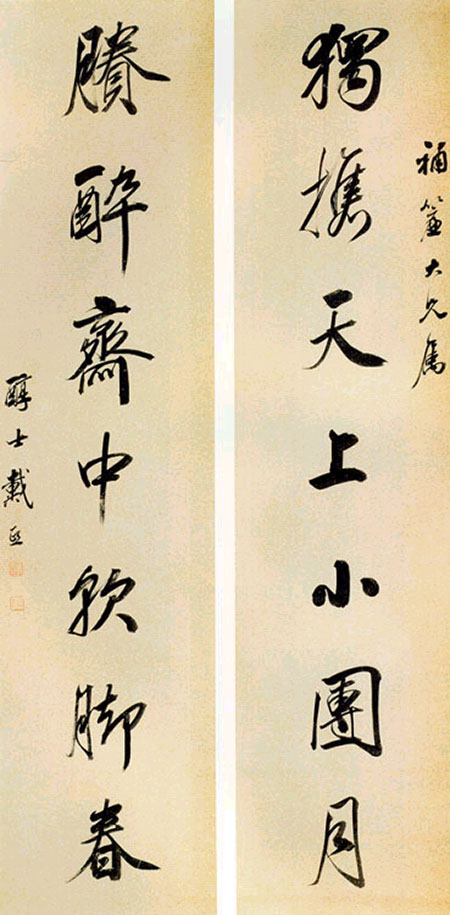 補大兄屬
獨攜天上小團月
賸醉齋中軟脚春
醇士戴熙